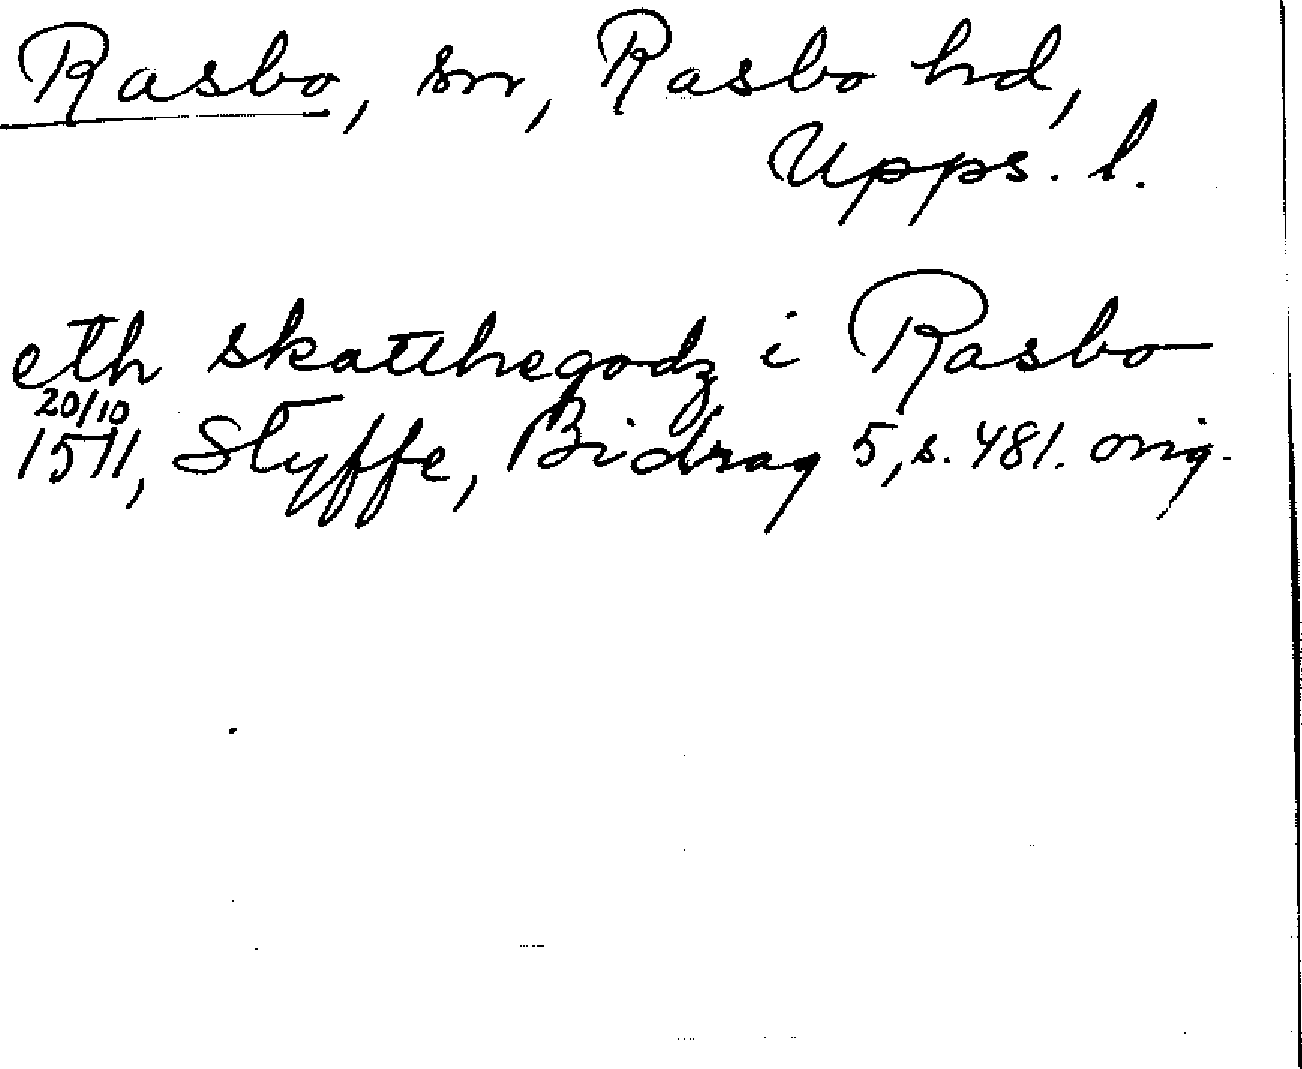 Rasbo, sn, Rasbo hd,
Upps. l.
eth skatthegodz i Rasbo
20/10
1511, Styffe, Bidrag 5, s. 481. orig.